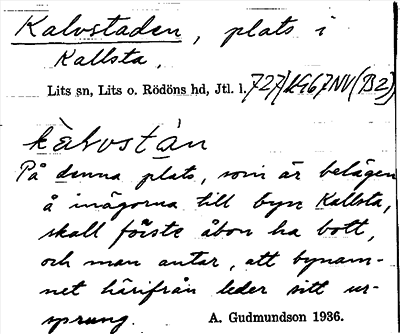 Kalvstaden, plats i
Kallsta.
Lits sn, Lits o. Rödöns hd, Jtl. l. 727/1467NV(B2)
kàlvstán
På denna plats, som är belägen
å inägorna till byn Kallsta,
skall förste åbon ha bott,
och man antar, att bynam-
net härifrån leder sitt ur-
sprung. A. Gudmundson 1936.